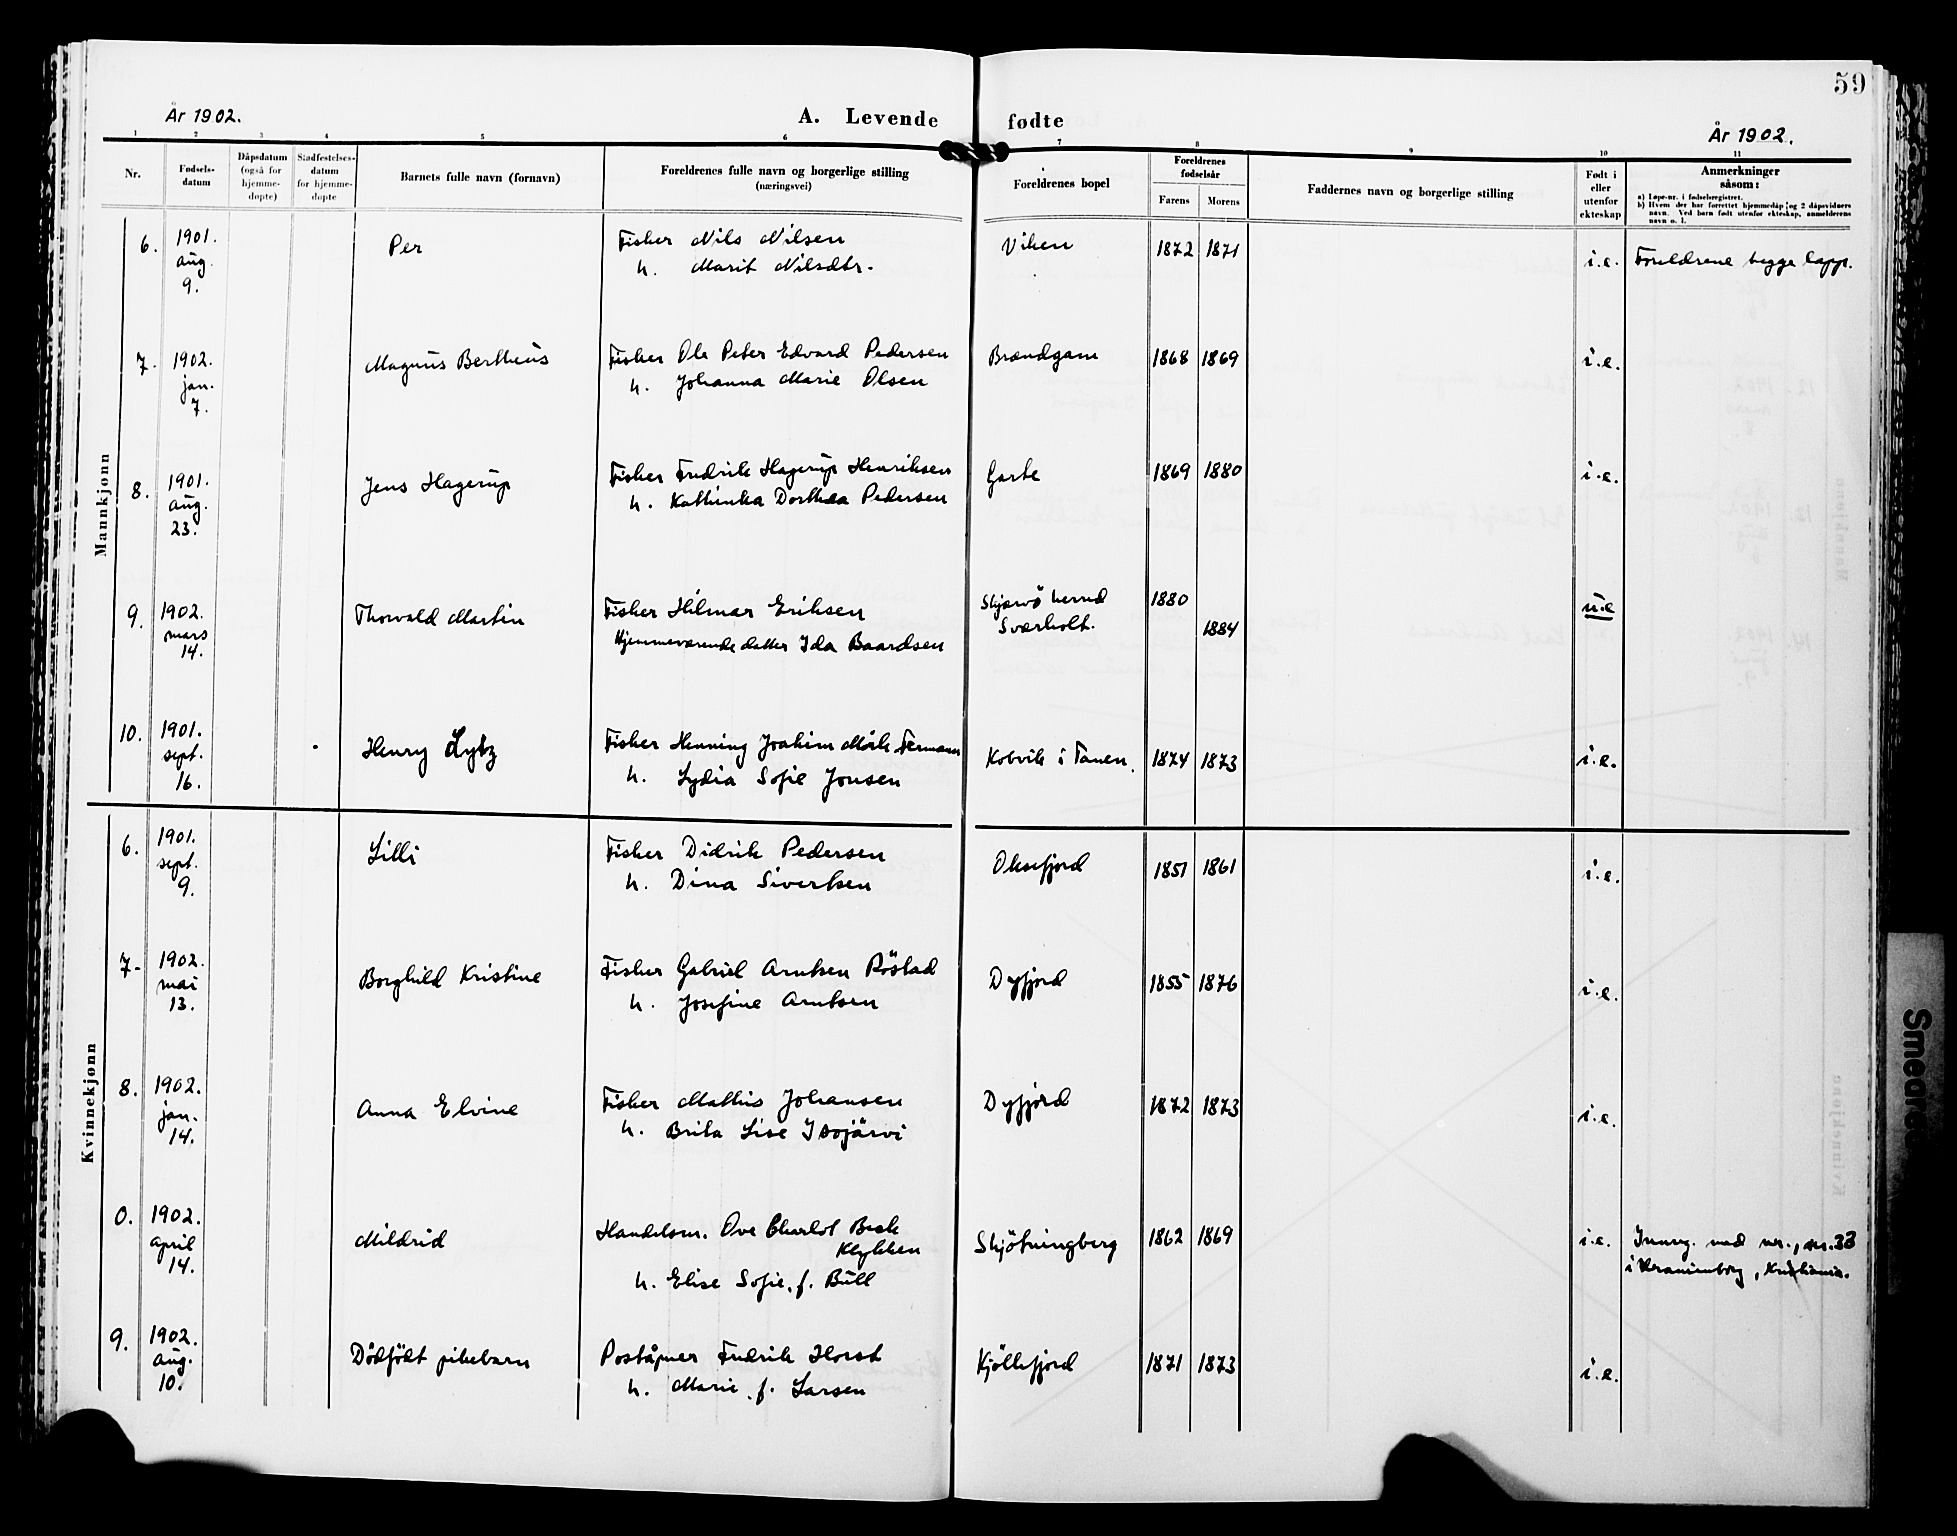 59
År 1902.
A. Levende fødte
År 1902.
1 2 3 4 5 6 7 8 9 10 11
Nr.
Fødsels-
datum
Dåpsdatum
(også for
hjemme-
døpte)
Stadfestelses-
datum
for hjemme-
døpte
Barnets fulle navn (fornavn)
Foreldrenes fulle navn og borgerlige stilling
(næringsvei)
Foreldrenes bopel
Foreldrenes
fødselsår
Farens Morens
Faddernes navn og borgerlige stilling
Født i
eller
utenfor
ekteskap
Anmerkninger
såsom:
a) Løpe-nr. i fødselsregistret.
b) Hvem der har forrettet hjemmedåp og 2 dåpsvidners
navn. Ved barn født utenfor ekteskap, anmelderens
navn o. l.
Mannkjønn
6. 1901. aug. 9. Per Fisker Nils Nilsen Viken 1872 1871 i.e. Foreldrene begge lapp.
h. Marit Nilsdtr.
7. 1902. jan. 7. Magnus Bertheus Fisker Ole Peter Edvard Pedersen Brændgam 1868 1869 i.e.
h. Johanna Marie Olsen
8. 1901. aug. 23. Jens Hagerup Fisker Fredrik Hagerup Henriksen Garte 1869 1880 i.e.
h. Kathinka Dorthea Pedersen
9. 1902. mars 14. Thorvald Martin Fisker Hilmar Eriksen Skjærvö herred 1880 u.e
Hjemmeværende datter Ida Baardsen Sværholt. 1884
10. 1901. sept. 16. Henry Lytz Fisker Henning Joakim Mörk Fermann Kobvik i Tanen. 1874 1873 i.e.
h. Lydia Sofie Jonsen
Kvinnekjønn
6. 1901. sept. 9. Lilli Fisker Didrik Pedersen Oksefjord 1851 1861 i.e.
h. Dina Sivertsen
7. 1902. mai 13. Borghild Kristine Fisker Gabriel Arntsen Röstad Dyfjord 1855 1876 i.e.
h. Josefine Arntsen
8. 1902. jan. 14. Anna Elvine Fisker Mathis Johansen Dyfjord 1872 1873 i.e.
h. Brita Lise Isojärvi
0. 1902. april 14. Mildrid Handelsm. Ove Charlot Beck Skjötningberg 1862 1869 i.e. Innreg. med nr., nr. 33
Klykken i Uranienborg, Kristiania.
h. Elise Sofie, f. Bull
9. 1902. aug. 10. Dödfödt pikebarn Poståpner Fredrik Horst Kjöllefjord 1871 1873 i.e.
h. Marie, f. Larsen